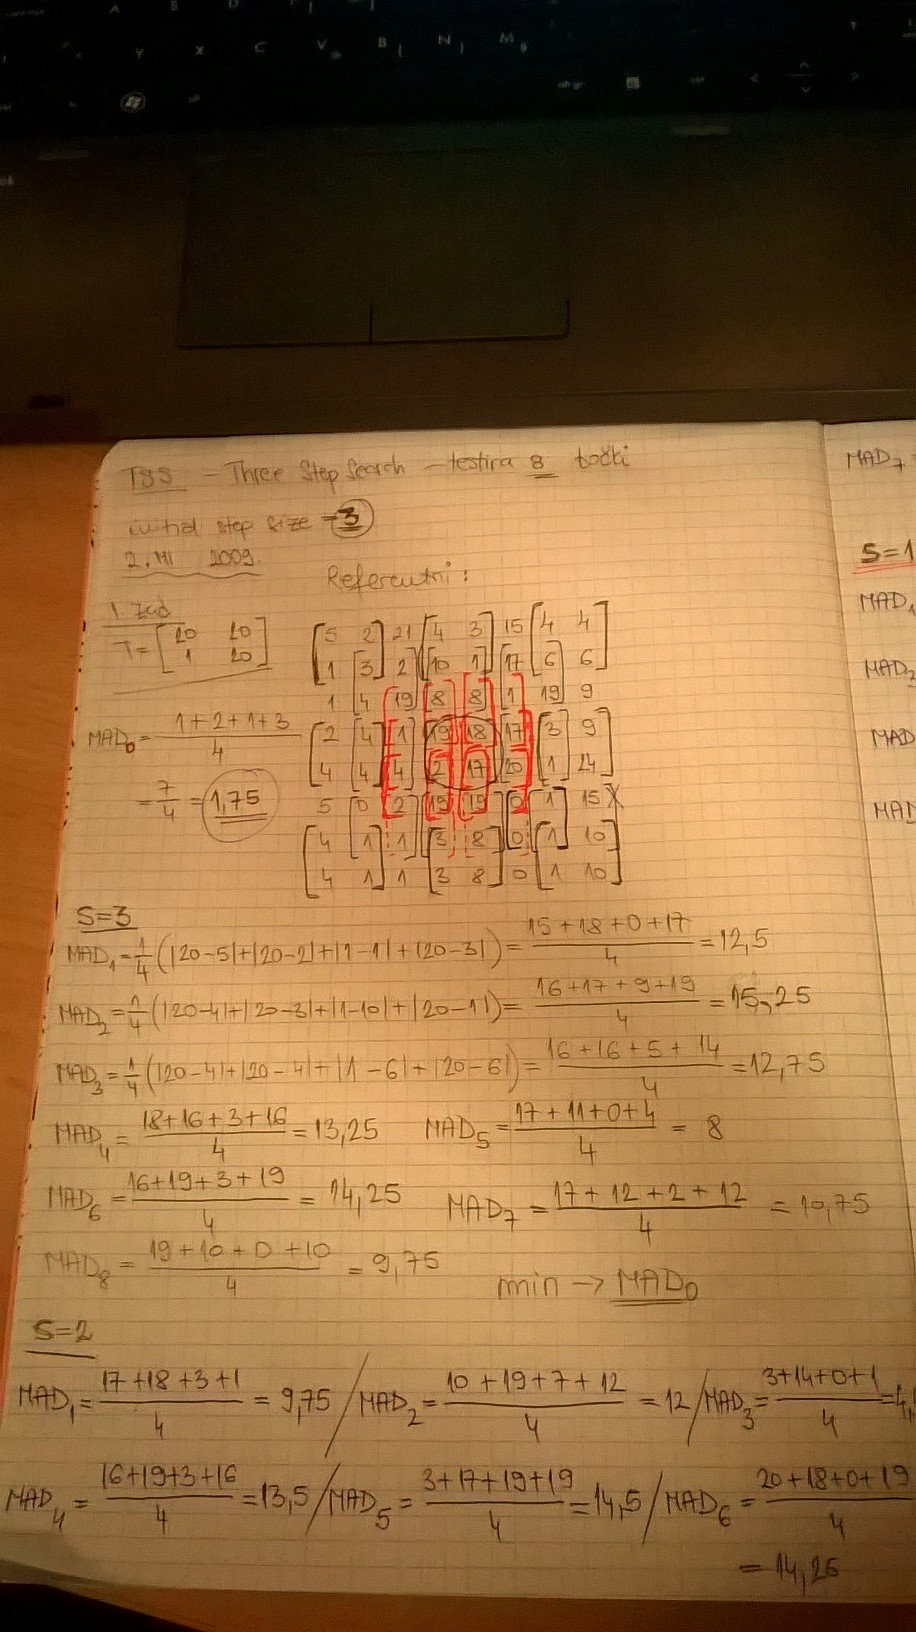 TSS - Three Step Search - testira 8 točki
initial step size = 3
2. MI 2009.
Referentni:
1. zad
T = [20 20
1 20]
5 2 21 4 3 15 4 4
1 3 2 10 1 17 6 6
1 4 19 8 8 1 19 9
2 4 1 19 18 17 3 9
4 4 4 2 17 20 1 24
5 0 2 19 19 0 1 15
4 1 1 3 8 0 1 10
4 1 1 3 8 0 1 10
MAD0 = 1+2+1+3 / 4
= 7/4 = 1,75
S=3
MAD1 = 1/4 (|20-5|+|20-2|+|1-1|+|20-3|) = 15+18+0+17 / 4 = 12,5
MAD2 = 1/4 (|20-4|+|20-3|+|1-10|+|20-1|) = 16+17+9+19 / 4 = 15,25
MAD3 = 1/4 (|20-4|+|20-4|+|1-6|+|20-6|) = 16+16+5+14 / 4 = 12,75
MAD4 = 18+16+3+16 / 4 = 13,25 MAD5 = 17+11+0+4 / 4 = 8
MAD6 = 16+19+3+19 / 4 = 14,25 MAD7 = 17+12+2+12 / 4 = 10,75
MAD8 = 19+10+0+10 / 4 = 9,75 min → MAD0
S=2
MAD1 = 17+18+3+1 / 4 = 9,75 / MAD2 = 10+19+7+12 / 4 = 12 / MAD3 = 3+14+0+1 / 4 = 4,
MAD4 = 16+19+3+16 / 4 = 13,5 / MAD5 = 3+17+19+19 / 4 = 14,5 / MAD6 = 20+18+0+19 / 4
= 14,25
MAD7 =
S=1
MAD
MAD2
MAD
MAD